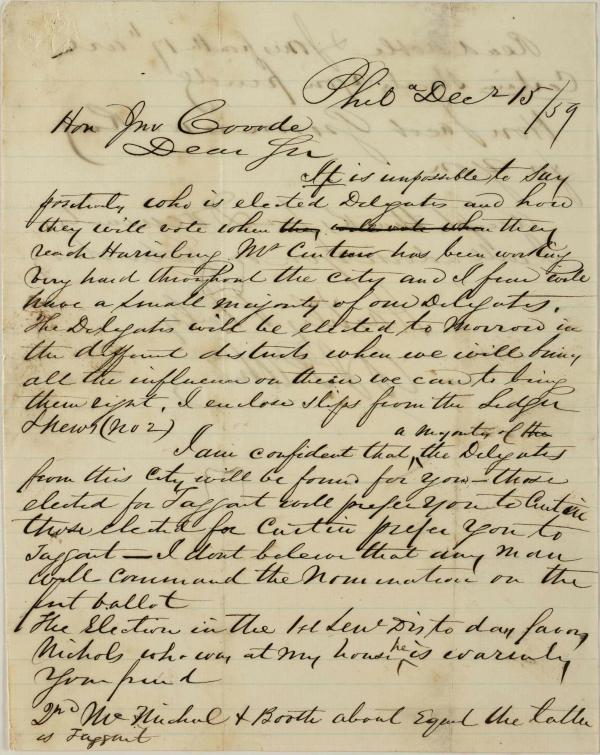 Phila Decr 15/59
Hon Jno Covode
Dear Sir
It is impossible to say
positively who is elected Delgates and how
they will vote when they will vote when they
reach Harrisburg Mr Curtin has been working
very hard throughout the city and I fear will
have a small majority of our Delegates.
The Delegates will be elected to morrow in
the different districts when we will bring
all the influence on them we can to bring
them right. I enclose slips from the Ledger
& News (no 2)
a majority of the
I am confident that the Delegates
from this City will be found for you – those
elected for Taggart will prefer You to Curtin
those elected for Curtin prefer You to
Taggart — I dont believe that any man
will command the Nomination on the
first ballot
The Election in the 1st Senl Dis to day favors
Nichols who was at my house he is warmly
Your friend
2nd McMichael & Booth about Equal the latter
is Taggart